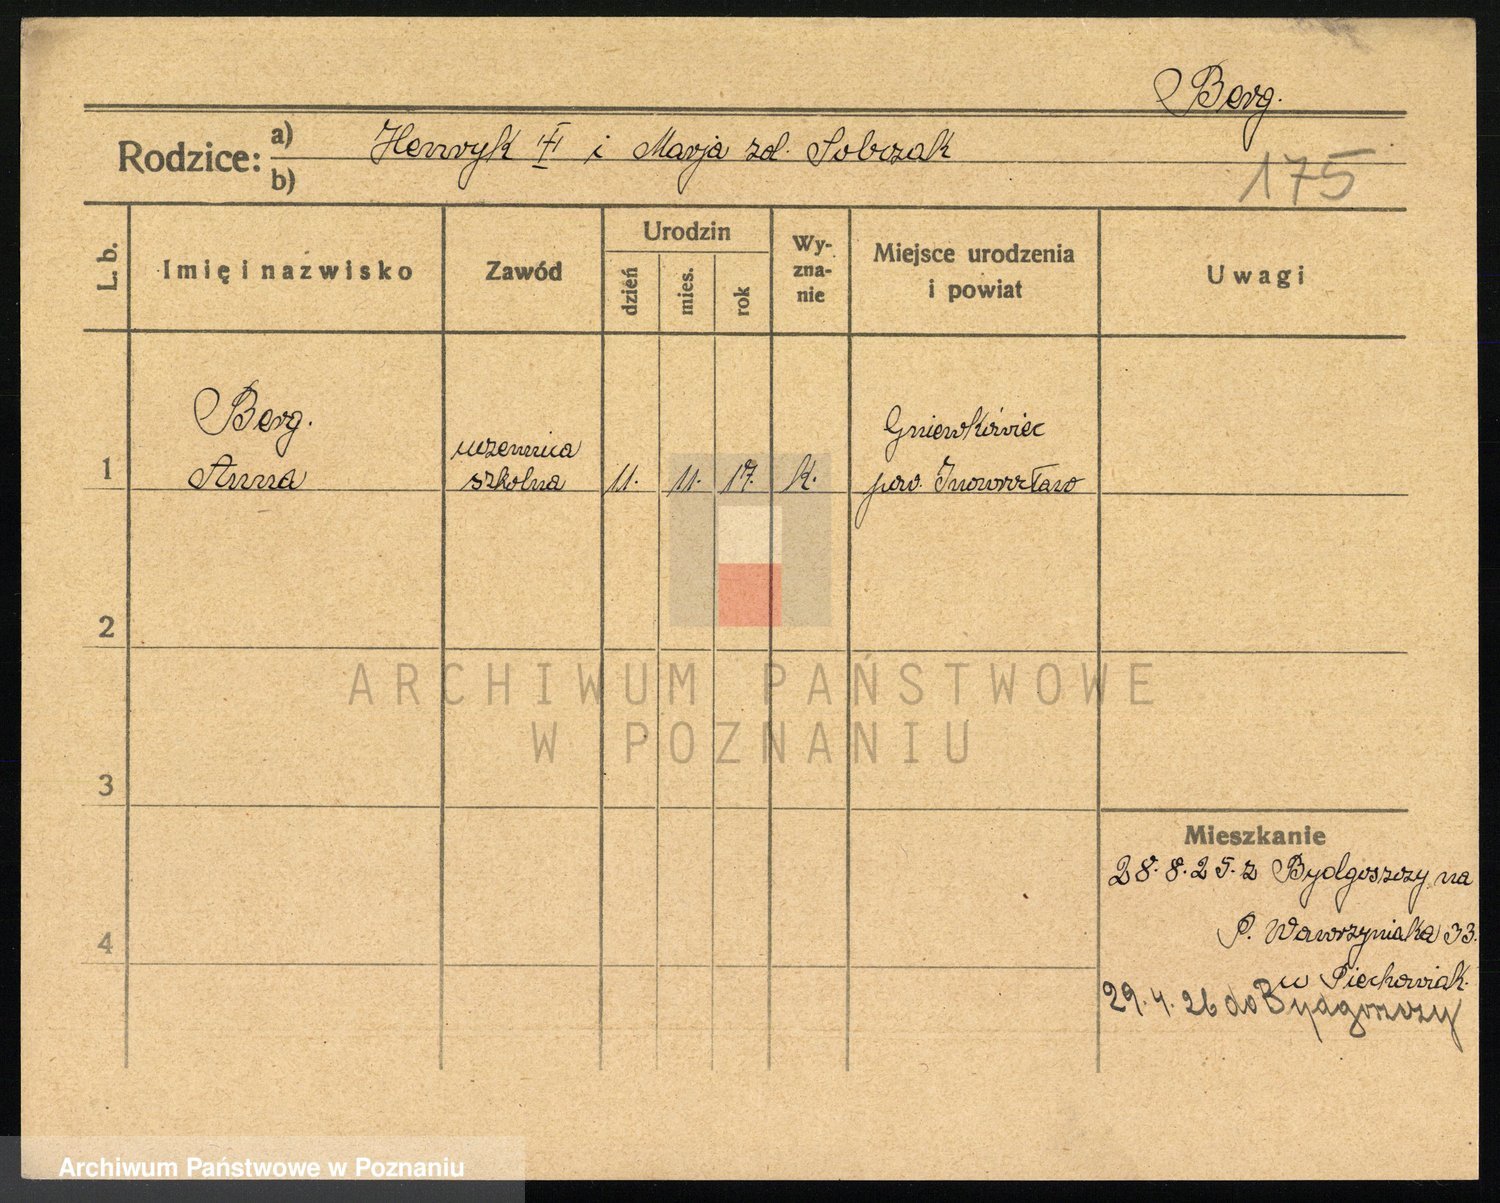 Berg.
Rodzice: a) Henryk i Marja zd. Sobczak
b)
175
L. b. Imię i nazwisko Zawód Urodzin dzień mies. rok Wy-zna-nie Miejsce urodzenia i powiat Uwagi
Berg. Gniewkówiec
uczennica
1 Anna szkolna 11. 11. 17. k. pow. Inowrocław
2
ARCHIWUM PAŃSTWOWE
W POZNANIU
3
Mieszkanie
28. 8. 25. z Bydgoszczy na
P. Wawrzyniaka 33.
4
w Piechowiak.
29. 4. 26 do Bydgoszczy
Archiwum Państwowe w Poznaniu